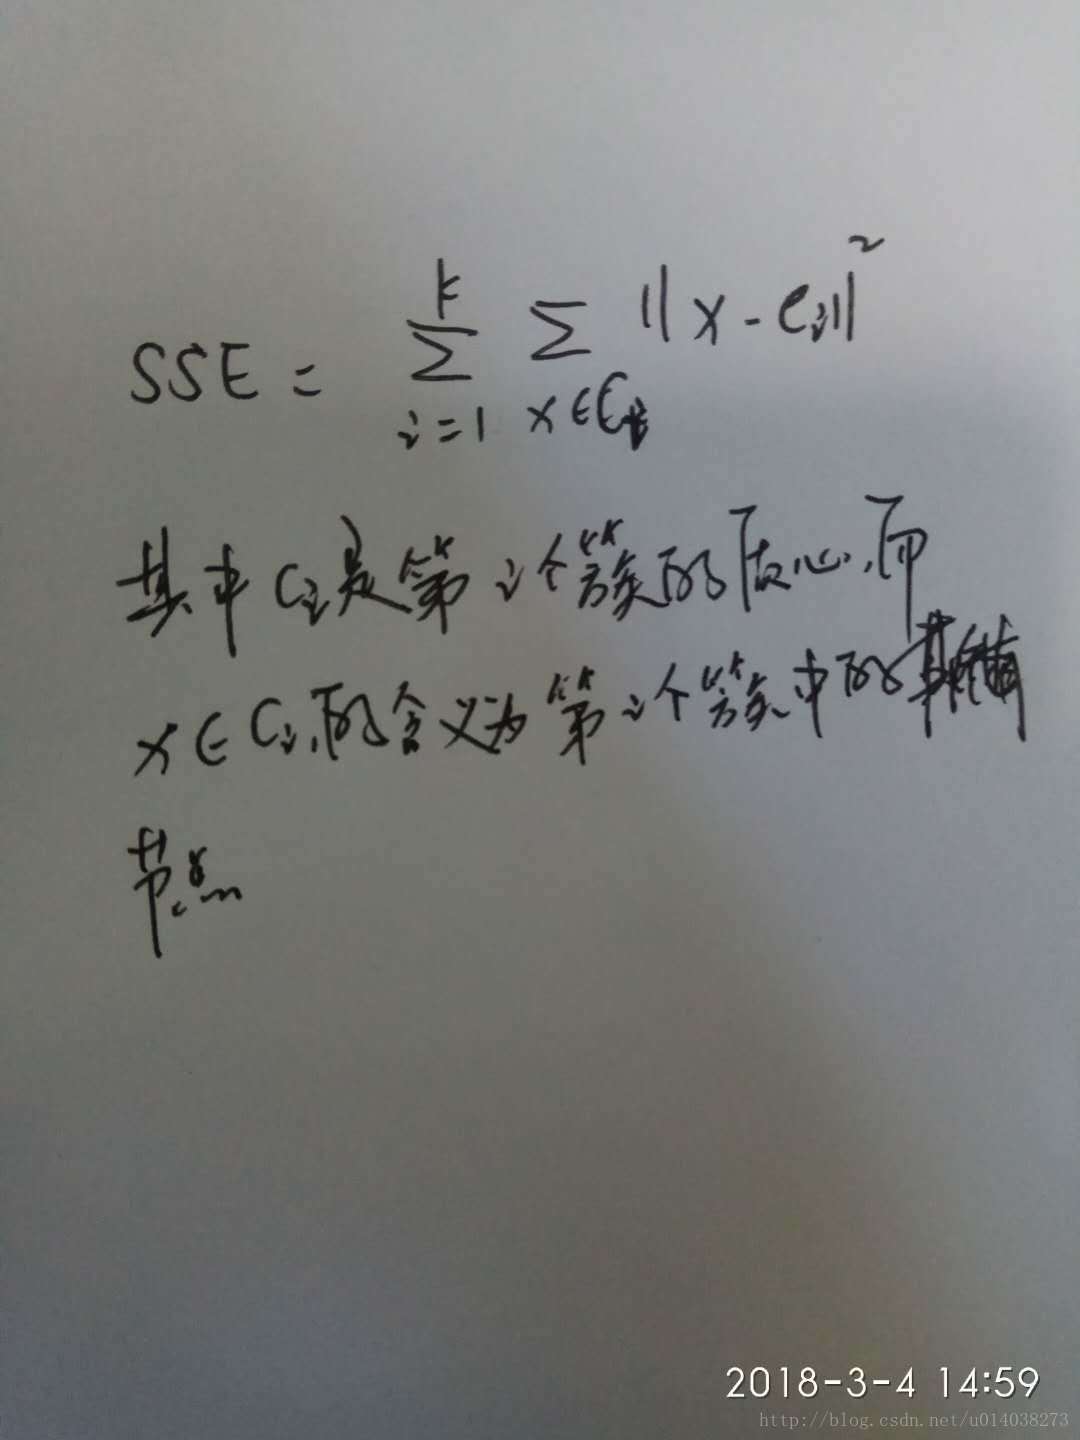 SSE = \sum_{i=1}^{k} \sum_{x \in C_i} || x - c_i ||^2
其中 c_i 是第 i 个簇的质心,而
x ∈ C_i 的含义为第 i 个簇中的
节点
2018-3-4 14:59
http://blog.csdn.net/u014038273